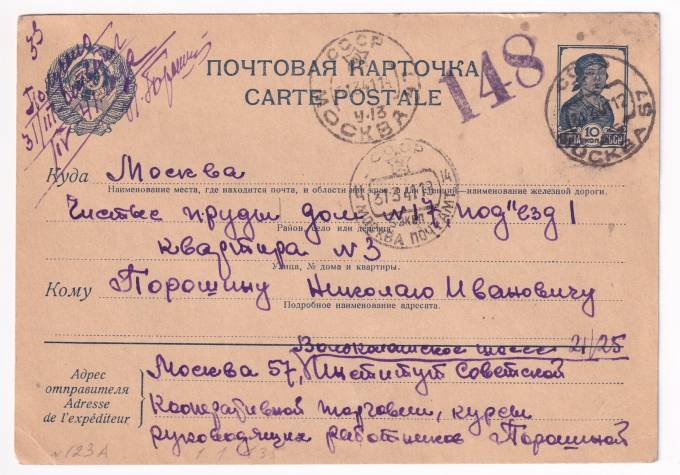 33
ПОЧТОВАЯ КАРТОЧКА
CARTE POSTALE
148
СССР
МОСКВА
СССР
МОСКВА 57
10 КОП.
Куда Москва
Наименование места, где находится почта, и области или края, а для станций—наименование железной дороги.
СССР
31 3 41
МОСКВА ПОЧТАМТ
Чистые пруды дом N17, под"езд 1
Район, село или деревня.
квартира N3
Улица, № дома и квартиры.
Кому Порошину Николаю Ивановичу
Подробное наименование адресата.
Волоколамское шоссе 21/25
Адрес
отправителя
Adresse
de l'expéditeur
Москва 57, Институт Советской
Кооперативной торговли, курсы
руководящих работников Порошиной
N123A